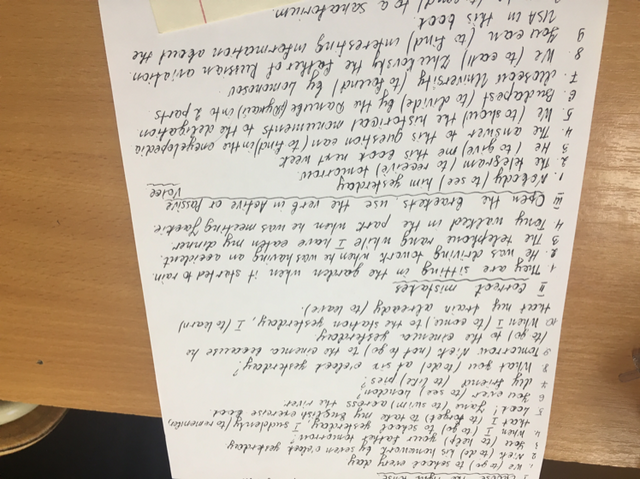 I Choose the right tense
1. We (to go) to school every day
2 Nick (to do) his homework by seven o'clock yesterday
3 You (to help) your father tomorrow?
4. When I (to go) to school yesterday, I suddenly (to remember)
that I (to forget) to take my English exercise book
5 Look! Jane (to swim) across the river
6 You ever (to see) London?
7 My friend (to like) pies
8 What you (to do) at six o'clock yesterday?
9 Tomorrow Nick (not to go) to the cinema because he
(to go) to the cinema yesterday
10. When I (to come) to the station yesterday, I (to learn)
that my train already (to leave)
II Correct mistakes
1 They are sitting in the garden when it started to rain
2. He was driving to work when he was having an accident
3 The telephone rang while I have eaten my dinner
4 Tony walked in the park when he was meeting Jackie
III Open the brackets, use the verb in Active or Passive
Voice
1. Nobody (to see) him yesterday
2. The telegram (to receive) tomorrow
3 He (to give) me this book next week
4 The answer to this question can (to find) in the encyclopedia
5. We (to show) the historical monuments to the delegation
6. Budapest (to divide) by the Danube (Дунай) into 2 parts
7. Moscow University (to found) by Lomonosov
8 We (to call) Zhukovsky the father of Russian aviation
9 You can (to find) interesting information about the
USA in this book
(to send) to a sanatorium